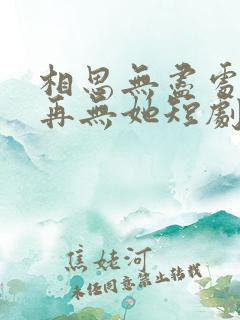 相思無盡處
再無她短劇
焦姥河
未经同意禁止转载